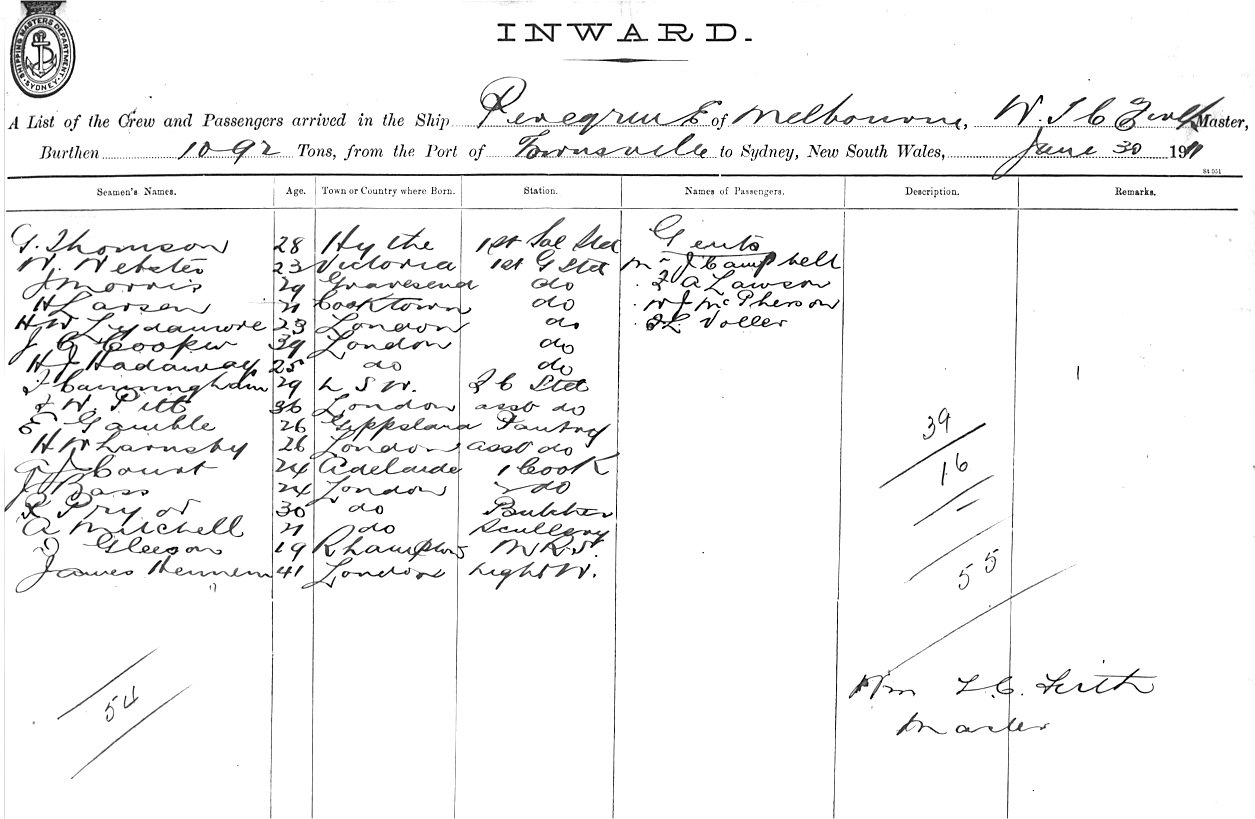 SHIPPING MASTERS DEPARTMENT
SYDNEY
INWARD.
A List of the Crew and Passengers arrived in the Ship Peregrine of Melbourne, W. T C Firth Master,
Burthen 1092 Tons, from the Port of Townsville to Sydney, New South Wales, June 30 1911
St 051
Seamen's Names. Age. Town or Country where Born. Station. Names of Passengers. Description. Remarks.
G. Thomson 28 Hythe 1st Sal Std Gents
W. Webster 23 Victoria 1st G Std Mr J Campbell
J Morris 29 Gravesend do A Lawson
H Larsen 21 Cooktown do J McPherson
H W Lydamore 23 London do L Voller
J G Cooper 39 London do
H J Hadaway 25 do do
J Cunningham 29 S W. C Std
W Pitt 36 London asst do
E Gamble 26 Gippsland Pantry
H W Larnsby 26 London asst do
J Court 24 Adelaide 1 Cook
J Bass 24 London 2 do
R Pryor 30 do Butcher
A Mitchell 21 do Scullery
J Gleeson 19 Rhampton M R St
James Hennem 41 London Light W.
39
16
55
54
Wm T. C. Firth
Master